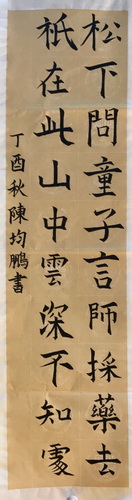 松下問童子言師採藥去
祇在此山中雲深不知處
丁酉秋陳均鵬書